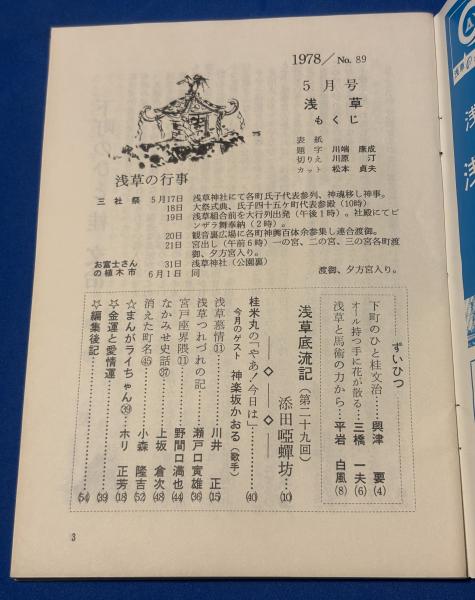 1978/No. 89
5月号
浅草
もくじ
表紙
題字 川端康成
切りえ 川原 汀
カット 松本貞夫
浅草の行事
三社祭 5月17日 浅草神社にて各町氏子代表参列、神魂移し神事。
18日 大祭式典、氏子四十五ヶ町代表参殿(10時)
19日 浅草組合前を大行列出発(午後1時)。社殿にてビンザラ舞奉納(2時)。
20日 観音裏広場に各町神輿百体余参集し連合渡御。
21日 宮出し(午前6時)一の宮、二の宮、三の宮各町渡御、夕方宮入り。
お富士さんの植木市 31日 浅草神社(公園裏)
6月1日 同 渡御、夕方宮入り。
ずいひつ
下町のひと桂文治……興津 要(4)
オール持つ手に花が散る……三橋一夫(6)
浅草と馬術の力から……平岩白風(8)
浅草底流記(第二十九回)
添田啞蟬坊…(10)
桂米丸の「やあ!今日は」……(40)
今月のゲスト 神楽坂かおる(歌手)
浅草慕情⑪……川井 正(15)
浅草つれづれの記……瀬戸口寅雄(36)
宮戸座界隈⑪……野間口満也(44)
なかみせ史話㊲……上坂倉次(48)
消えた町名㊺……小森隆吉(52)
☆まんがライちゃん㊴……ホリ 正芳(18)
☆金運と愛情運……(39)
☆編集後記……(54)
3